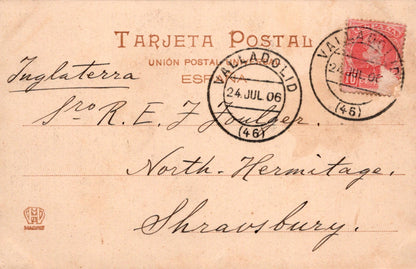 TARJETA POSTAL
UNIÓN POSTAL
ESPAÑA
VALLADOLID
24 JUL 06
(46)
VALLADOLID
24 JUL 06
(46)
Inglaterra
Sro R. E. F. Foulger.
North-Hermitage.
Shravsbury.
MADRID